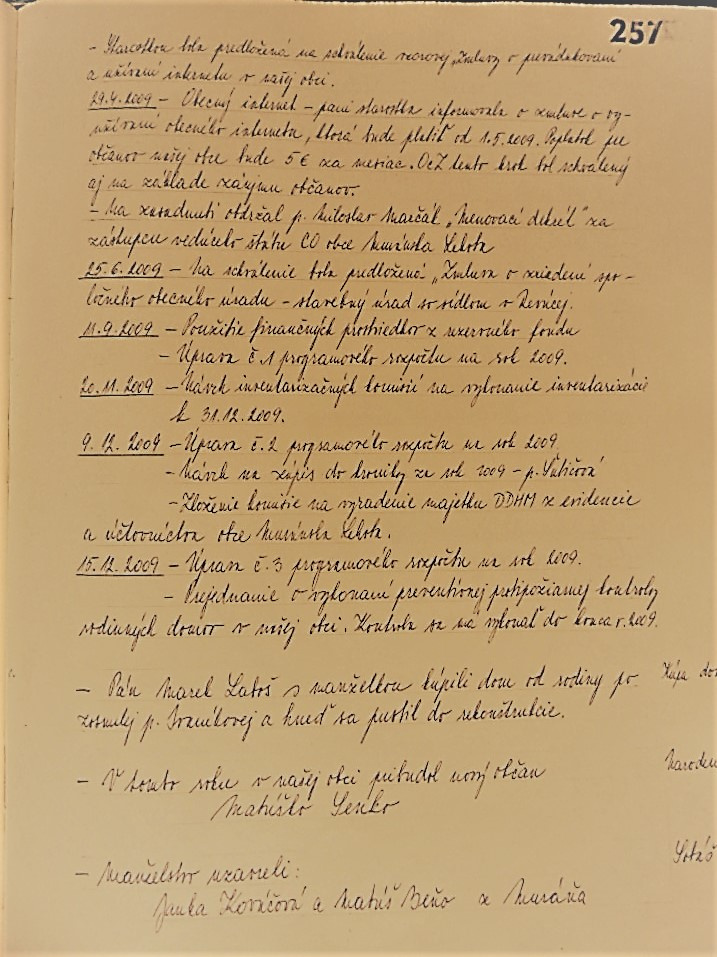 257
- Starostkou bola predložená na schválenie vzorovej „Zmluvy o prevádzkovaní
a užívaní internetu v našej obci.
29.4.2009 - Obecný internet - pani starostka informovala o zmluve o vy-
užívaní obecného internetu, ktorá bude platiť od 1.5.2009. Poplatok pre
občanov našej obce bude 5 € za mesiac. OcZ tento krok bol schválený
aj na základe záujmu občanov.
- Na zasadnutí obdržal p. Miloslav Marčák „Menovací dekrét" za
zástupcu vedúceho štábu CO obce Muránska Lehota
25.6.2009 - Na schválenie bola predložená „Zmluva o zriadení spo-
ločného obecného úradu - stavebný úrad so sídlom v Revúcej.
11.9.2009 - Použitie finančných prostriedkov z rezervného fondu
- Úprava č.1 programového rozpočtu na rok 2009.
20.11.2009 - Návrh inventarizačných komisií na vykonanie inventarizácie
k 31.12.2009.
9.12.2009 - Úprava č.2 programového rozpočtu na rok 2009
- Návrh na zápis do kroniky za rok 2009 - p.
- Zloženie komisie na vyradenie majetku DDHM z evidencie
a účtovníctva obce Muránska Lehota.
15.12.2009 - Úprava č.3 programového rozpočtu na rok 2009.
- Prejednanie o vykonaní preventívnej protipožiarnej kontroly
rodinných domov v našej obci. Kontrola sa má vykonať do konca r. 2009.
- Pán Marek Latoš s manželkou kúpili dom od rodiny po- Kúpa
zosnulej p. a hneď sa pustil do rekonštrukcie.
- V tomto roku v našej obci pribudol nový občan Naroden
Matúško Senko
Sobáš
- Manželstvo uzavreli:
Janka Kováčová a Matúš Beňo z Muráňa